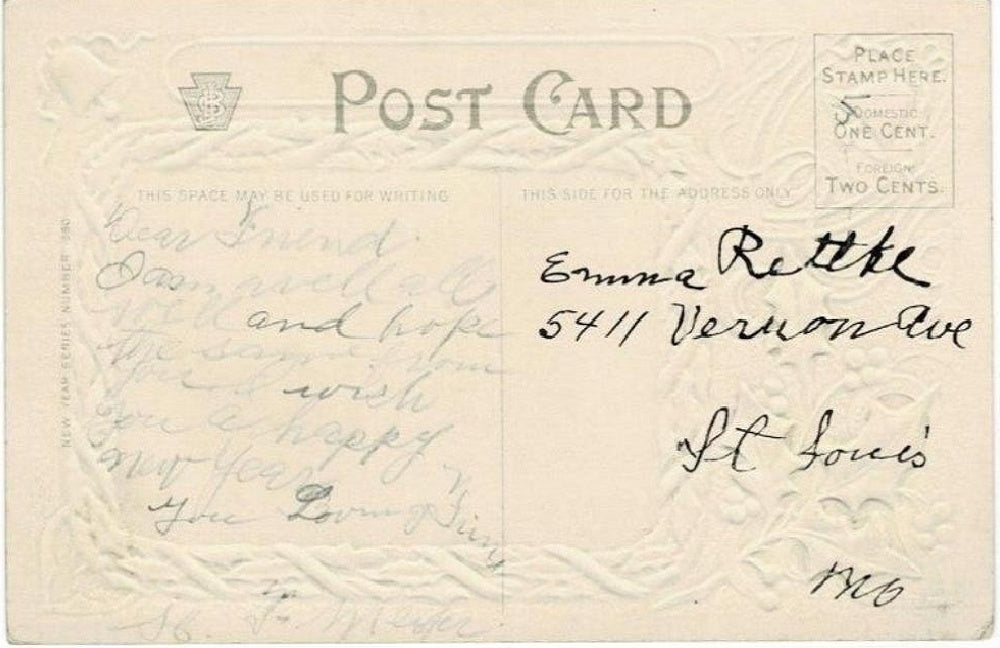 POST CARD
PLACE
STAMP HERE.
DOMESTIC
ONE CENT.
FOREIGN
TWO CENTS.
THIS SPACE MAY BE USED FOR WRITING
THIS SIDE FOR THE ADDRESS ONLY
NEW YEAR SERIES NUMBER
Dear Friend
I am well all
well and hope
the same from
you I wish
you a happy
new year
you Loving
Emma Rettke
5411 Vernon Ave
St Louis
Mo